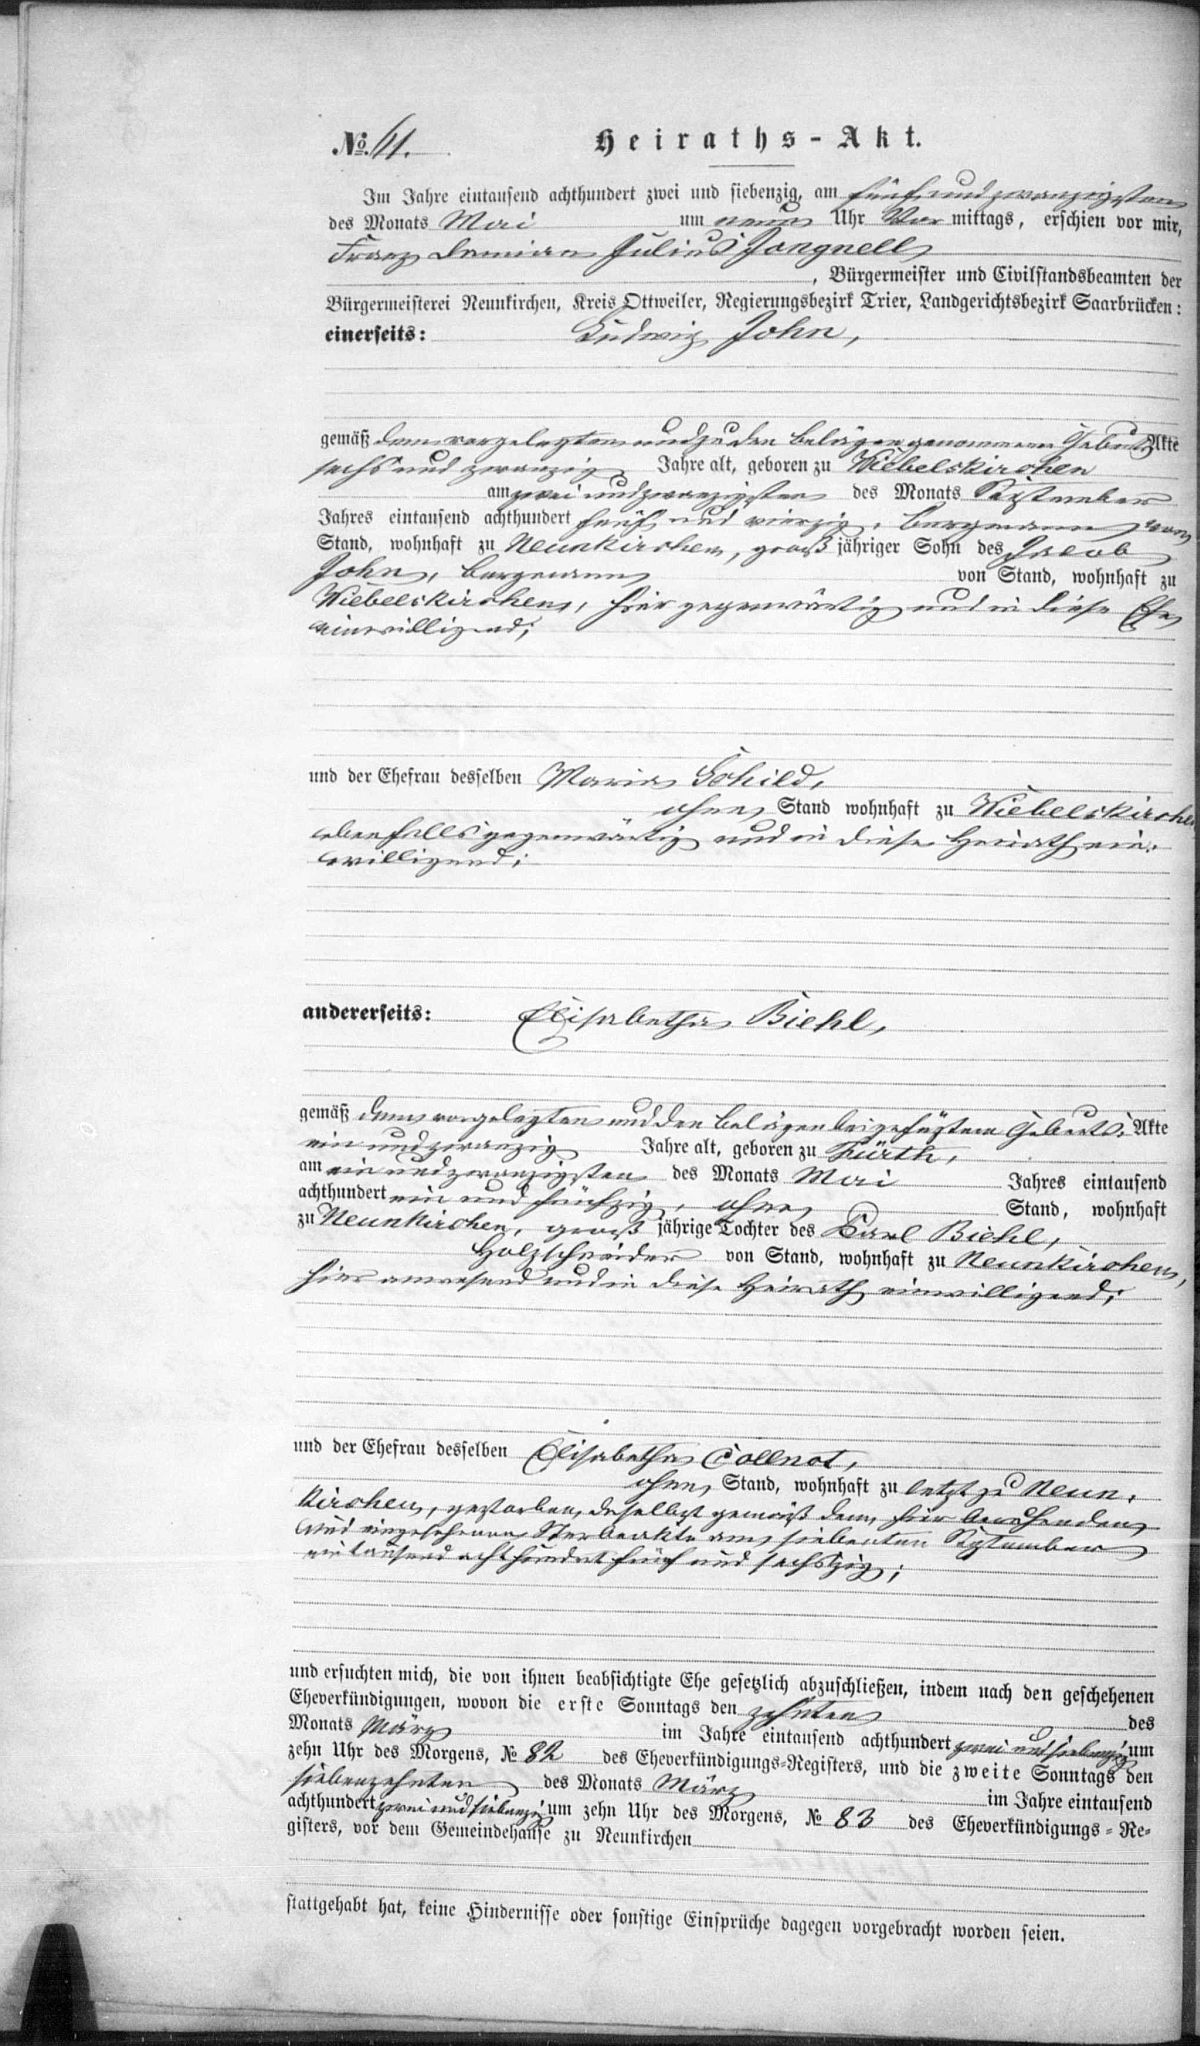 No. 61. Heiraths-Akt.
Im Jahre eintausend achthundert zwei und siebenzig, am fünf und zwanzigsten
des Monats Mai um neun Uhr Vor mittags, erschien vor mir,
Franz Damian Julius Jongnell
, Bürgermeister und Civilstandsbeamten der
Bürgermeisterei Neunkirchen, Kreis Ottweiler, Regierungsbezirk Trier, Landgerichtsbezirk Saarbrücken:
einerseits: Ludwig John,
gemäß dem vorgelegten und zu den Belägen genommenen Geburts Akte
sechs und zwanzig Jahre alt, geboren zu Wiebelskirchen
am zwei und zwanzigsten des Monats September
Jahres eintausend achthundert fünf und vierzig, Bergmann von
Stand, wohnhaft zu Neunkirchen, groß jähriger Sohn des Jacob
John, Bergmann von Stand, wohnhaft zu
Wiebelskirchen, hier gegenwärtig und in diese Ehe
einwilligend;
und der Ehefrau desselben Maria Schild,
ohne Stand wohnhaft zu Wiebelskirchen
ebenfalls gegenwärtig und in diese Heirath ein-
willigend;
andererseits: Elisabetha Biehl,
gemäß dem vorgelegten und den Belägen beigefügten Geburts-Akte
ein und zwanzig Jahre alt, geboren zu Fürth,
am ein und zwanzigsten des Monats Mai Jahres eintausend
achthundert ein und fünfzig, ohne Stand, wohnhaft
zu Neunkirchen, groß jährige Tochter des Carl Biehl,
Holzschneider von Stand, wohnhaft zu Neunkirchen,
hier anwesend und in diese Heirath einwilligend;
und der Ehefrau desselben Elisabetha Collnot,
ohne Stand, wohnhaft zu letzt zu Neun-
kirchen, gestorben daselbst gemäß dem hier beruhenden
und eingesehenen Sterbeakte am siebenten September
eintausend achthundert fünf und sechszig;
und ersuchten mich, die von ihnen beabsichtigte Ehe gesetzlich abzuschließen, indem nach den geschehenen
Eheverkündigungen, wovon die erste Sonntags den zehnten des
Monats März im Jahre eintausend achthundert zwei und siebenzig um
zehn Uhr des Morgens, No 82 des Eheverkündigungs-Registers, und die zweite Sonntags den
siebenzehnten des Monats März im Jahre eintausend
achthundert zwei und siebenzig um zehn Uhr des Morgens, No 83 des Eheverkündigungs-Re-
gisters, vor dem Gemeindehause zu Neunkirchen
stattgehabt hat, keine Hindernisse oder sonstige Einsprüche dagegen vorgebracht worden seien.